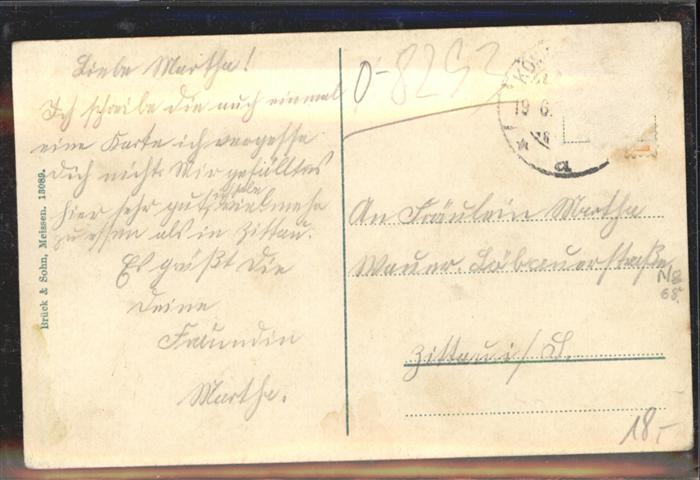 Liebe Martha!
Ich schreibe die auch einmal
eine Karte ich vergesse
Dich nicht. Wir gefälltes
hier sehr gut,
viel mehr
zu essen als in Zittau.
Es grüßt Die
Deine
Freundin
Martha.
Brück & Sohn, Meissen. 13089.
0-8253
19 6.
a
An Fräulein Martha
Löbauerstraße
No
68.
Zittau i/S.
18,-